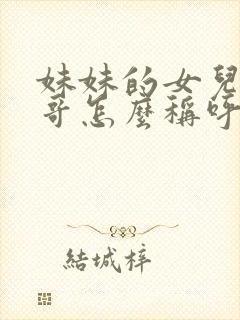 妹妹的女兒
哥怎麼稱呼
結城梓